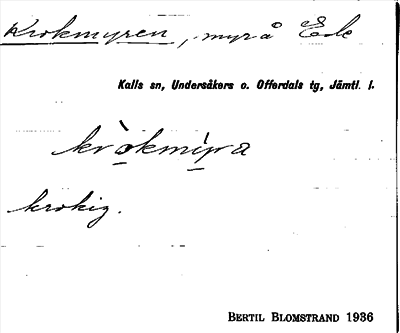 Krokmyren, myr å Ede
Kalls sn, Undersåkers o. Offerdals tg, Jämtl. l.
kròkmı̀ra
krokig.
BERTIL BLOMSTRAND 1936